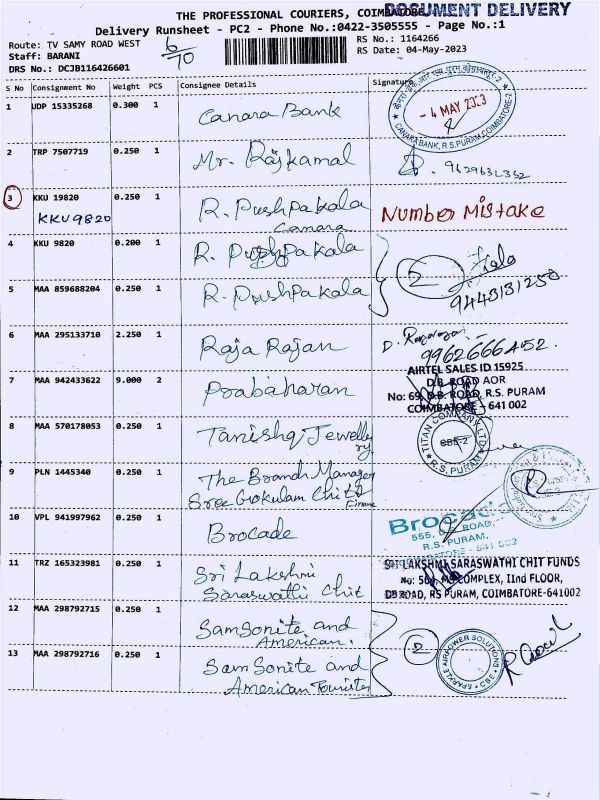 THE PROFESSIONAL COURIERS, COIMBATORE
DOCUMENT DELIVERY
Delivery Runsheet - PC2 - Phone No.:0422-3505555 - Page No.:1
Route: TV SAMY ROAD WEST
6/70
RS No.: 1164266
Staff: BARANI
RS Date: 04-May-2023
DRS No.: DCJB116426601
S No Consignment No Weight PCS Consignee Details Signature
1 UDP 15335268 0.300 1 Canara Bank
- 4 MAY 2023
CANARA BANK, R S PURAM, COIMBATORE-2
2 TRP 7507719 0.250 1 Mr. Rajkamal 9629631352
3 KKU 19820 0.250 1 R. Pushpakala Number Mistake
KKU9820 Canara
4 KKU 9820 0.200 1 R. Pushpakala 2 Kala
5 MAA 859688204 0.250 1 R. Pushpakala 9443131250
6 MAA 295133710 2.250 1 Raja Rajan
9962666452
AIRTEL SALES ID 15925
7 MAA 942433622 9.000 2 Prabaharan
D.B. ROAD AOR
No: 69, D.B. ROAD, R.S. PURAM
COIMBATORE - 641 002
8 MAA 570178053 0.250 1 Tanishq Jewellery
TITAN COMPANY LTD
CBE-2
R.S. PURAM
9 PLN 1445340 0.250 1 The Branch Manager
Sree Gokulam Chit &
Finance
10 VPL 941997962 0.250 1 Brocade
Brocade
555, D.B. ROAD,
R.S. PURAM,
COIMBATORE - 641 002
11 TRZ 165323981 0.250 1 Sri Lakshmi
Saraswathi Chit
SRI LAKSHMI SARASWATHI CHIT FUNDS
COMPLEX, IInd FLOOR,
DB ROAD, RS PURAM, COIMBATORE-641002
12 MAA 298792715 0.250 1 Samsonite and
American.
2
SPARKLE AIRPOWER SOLUTIONS
CBE
13 MAA 298792716 0.250 1 Samsonite and
American Tourister